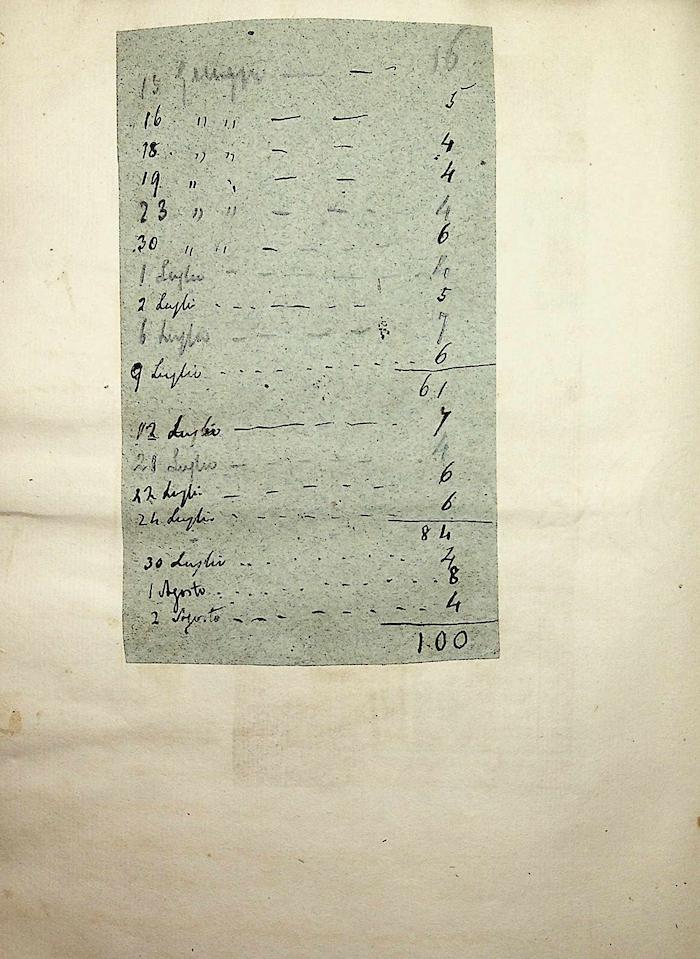 15 Giugno — — 16
16 " " — — 5
18 " " — — 4
19 " " — — 4
23 " " — — 4
30 " " — — 6
1 Luglio — — — 4
2 Luglio — — — 5
6 Luglio — — — 7
9 Luglio — — — 6
61
12 Luglio — — — 7
21 Luglio — — — 4
22 Luglio — — — 6
24 Luglio — — — 6
84
30 Luglio — — — 4
1 Agosto — — — 8
2 Agosto — — — 4
100